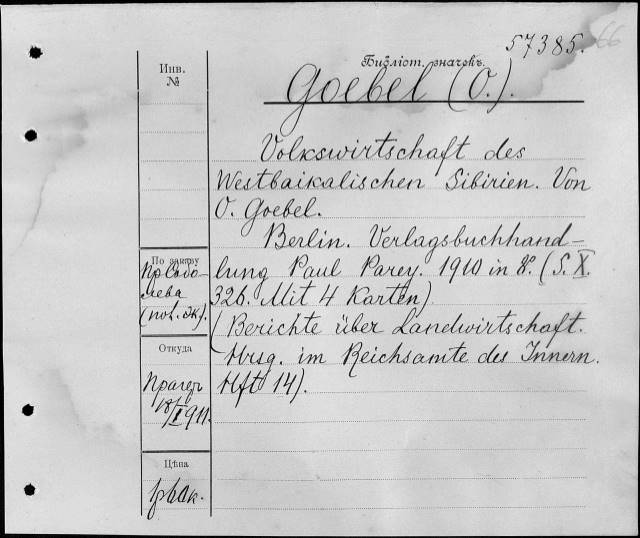 57385. 66
Библіот. значекъ.
Инв.
№
Goebel (O.).
Volkswirtschaft des
Westbaikalischen Sibirien. Von
O. Goebel.
Berlin. Verlagsbuchhand-
lung Paul Parey. 1910 in 8°. (S. X.
326. Mit 4 Karten).
(Berichte über Landwirtschaft.
Hrsg. im Reichsamte des Innern.
Hft 14).
По заказу
Откуда
Прагеръ
1911.
Цѣна